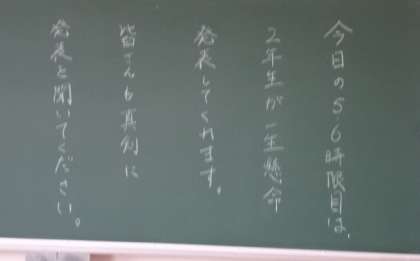 今日の5.6時限目は、
2年生が一生懸命
発表してくれます。
皆さんも真剣に
発表を聞いてください。